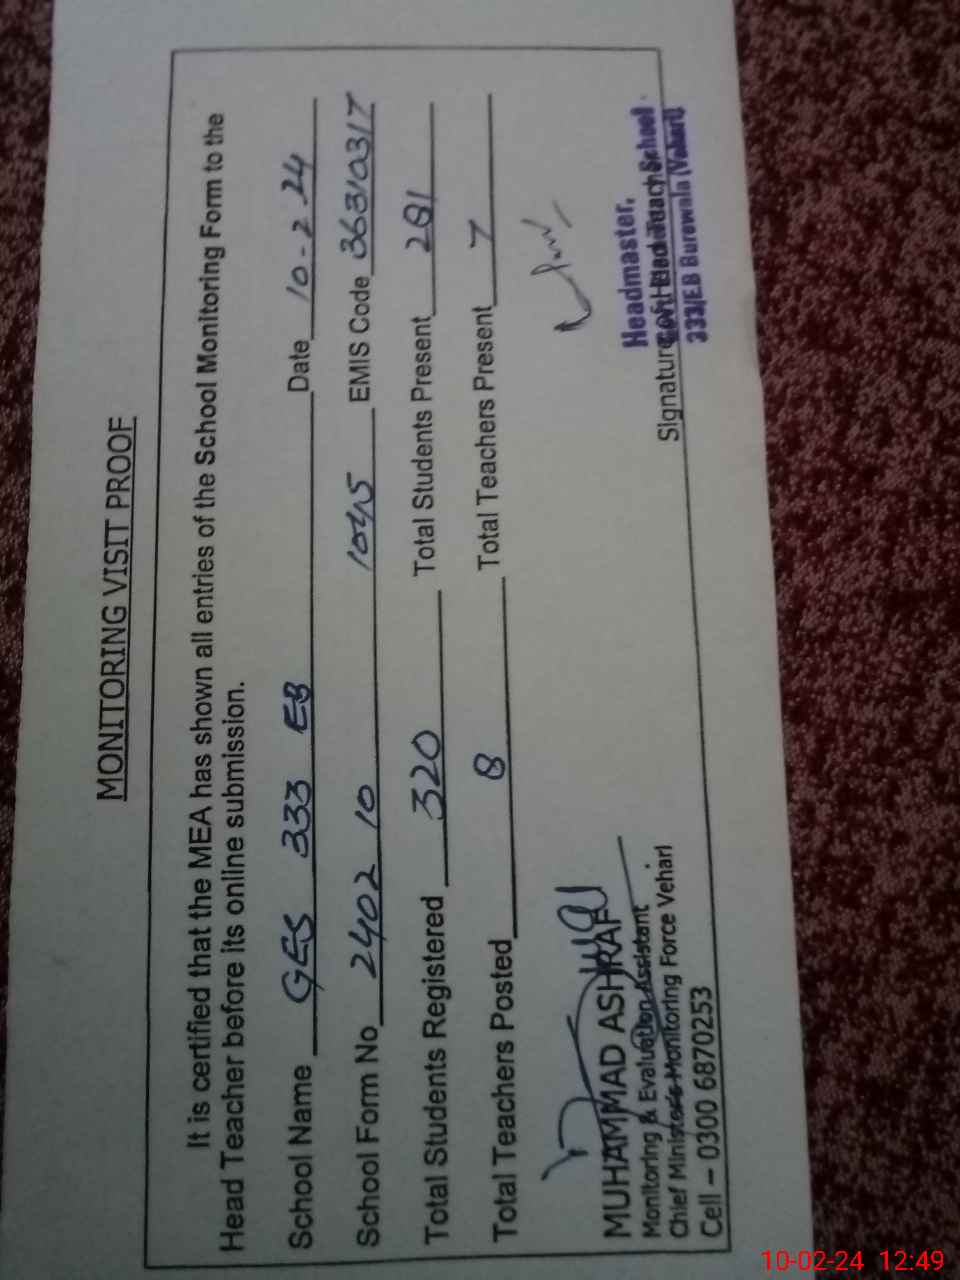 MONITORING VISIT PROOF
It is certified that the MEA has shown all entries of the School Monitoring Form to the
Head Teacher before its online submission.
School Name GES 333 EB Date 10-2-24
School Form No 2402 10 1045 EMIS Code 36310317
Total Students Registered 320 Total Students Present 281
Total Teachers Posted 8 Total Teachers Present 7
MUHAMMAD ASHRAF
Monitoring & Evaluation Assistant
Chief Minister's Monitoring Force Vehari
Cell – 0300 6870253
Headmaster,
Signature of Head Teacher School
333/EB Burewala (Vehari)
10-02-24 12:49